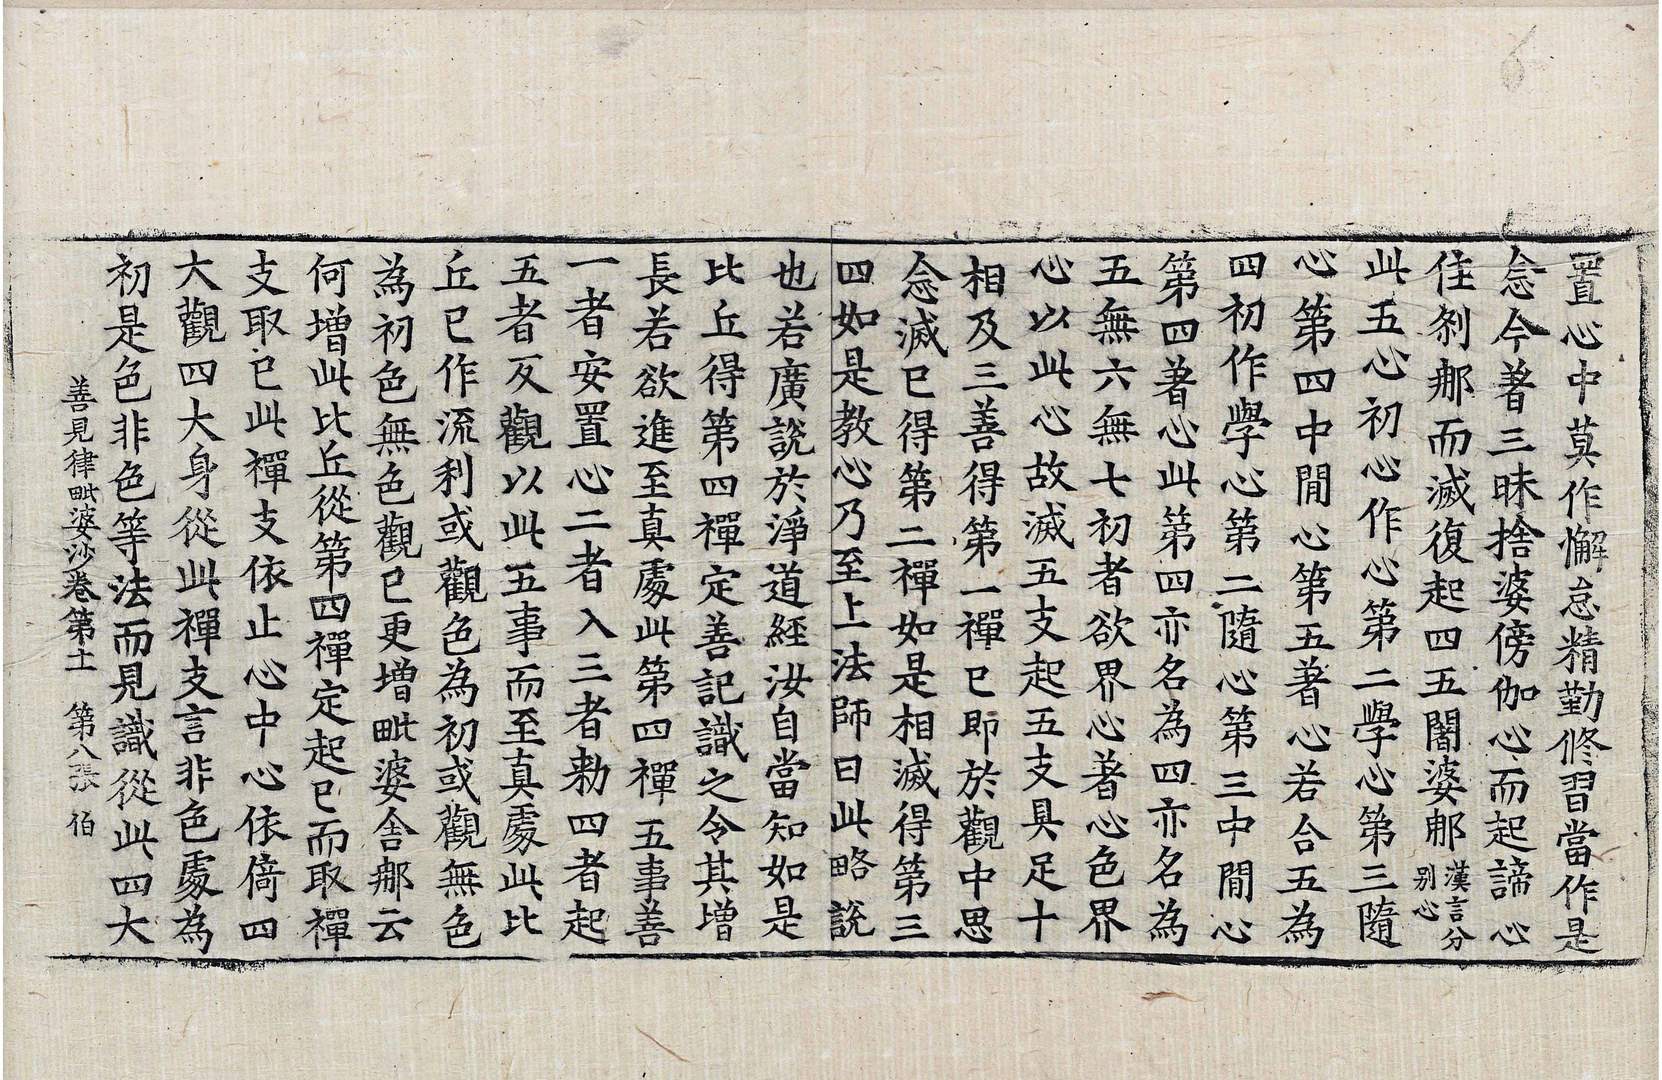 置心中莫作懈怠精勤修習當作是
念今著三昧捨婆傍伽心而起諦心
住刹那而滅復起四五闍婆那漢言分别心
此五心初心作心第二學心第三隨
心第四中間心第五著心若合五為
四初作學心第二隨心第三中間心
第四著心此第四亦名為四亦名為
五無六無七初者欲界心著心色界
心以此心故滅五支起五支具足十
相及三善得第一禪已即於觀中思
念滅已得第二禪如是相滅得第三
四如是教心乃至上法師曰此略說
也若廣說於淨道經汝自當知如是
比丘得第四禪定善記識之令其增
長若欲進至真處此第四禪五事善
一者安置心二者入三者勑四者起
五者反觀以此五事而至真處此比
丘已作流利或觀色為初或觀無色
為初色無色觀已更增毗婆舍那云
何增此比丘從第四禪定起已而取禪
支取已此禪支依止心中心依倚四
大觀四大身從此禪支言非色處為
初是色非色等法而見識從此四大
善見律毗婆沙卷第十一　第八張　伯